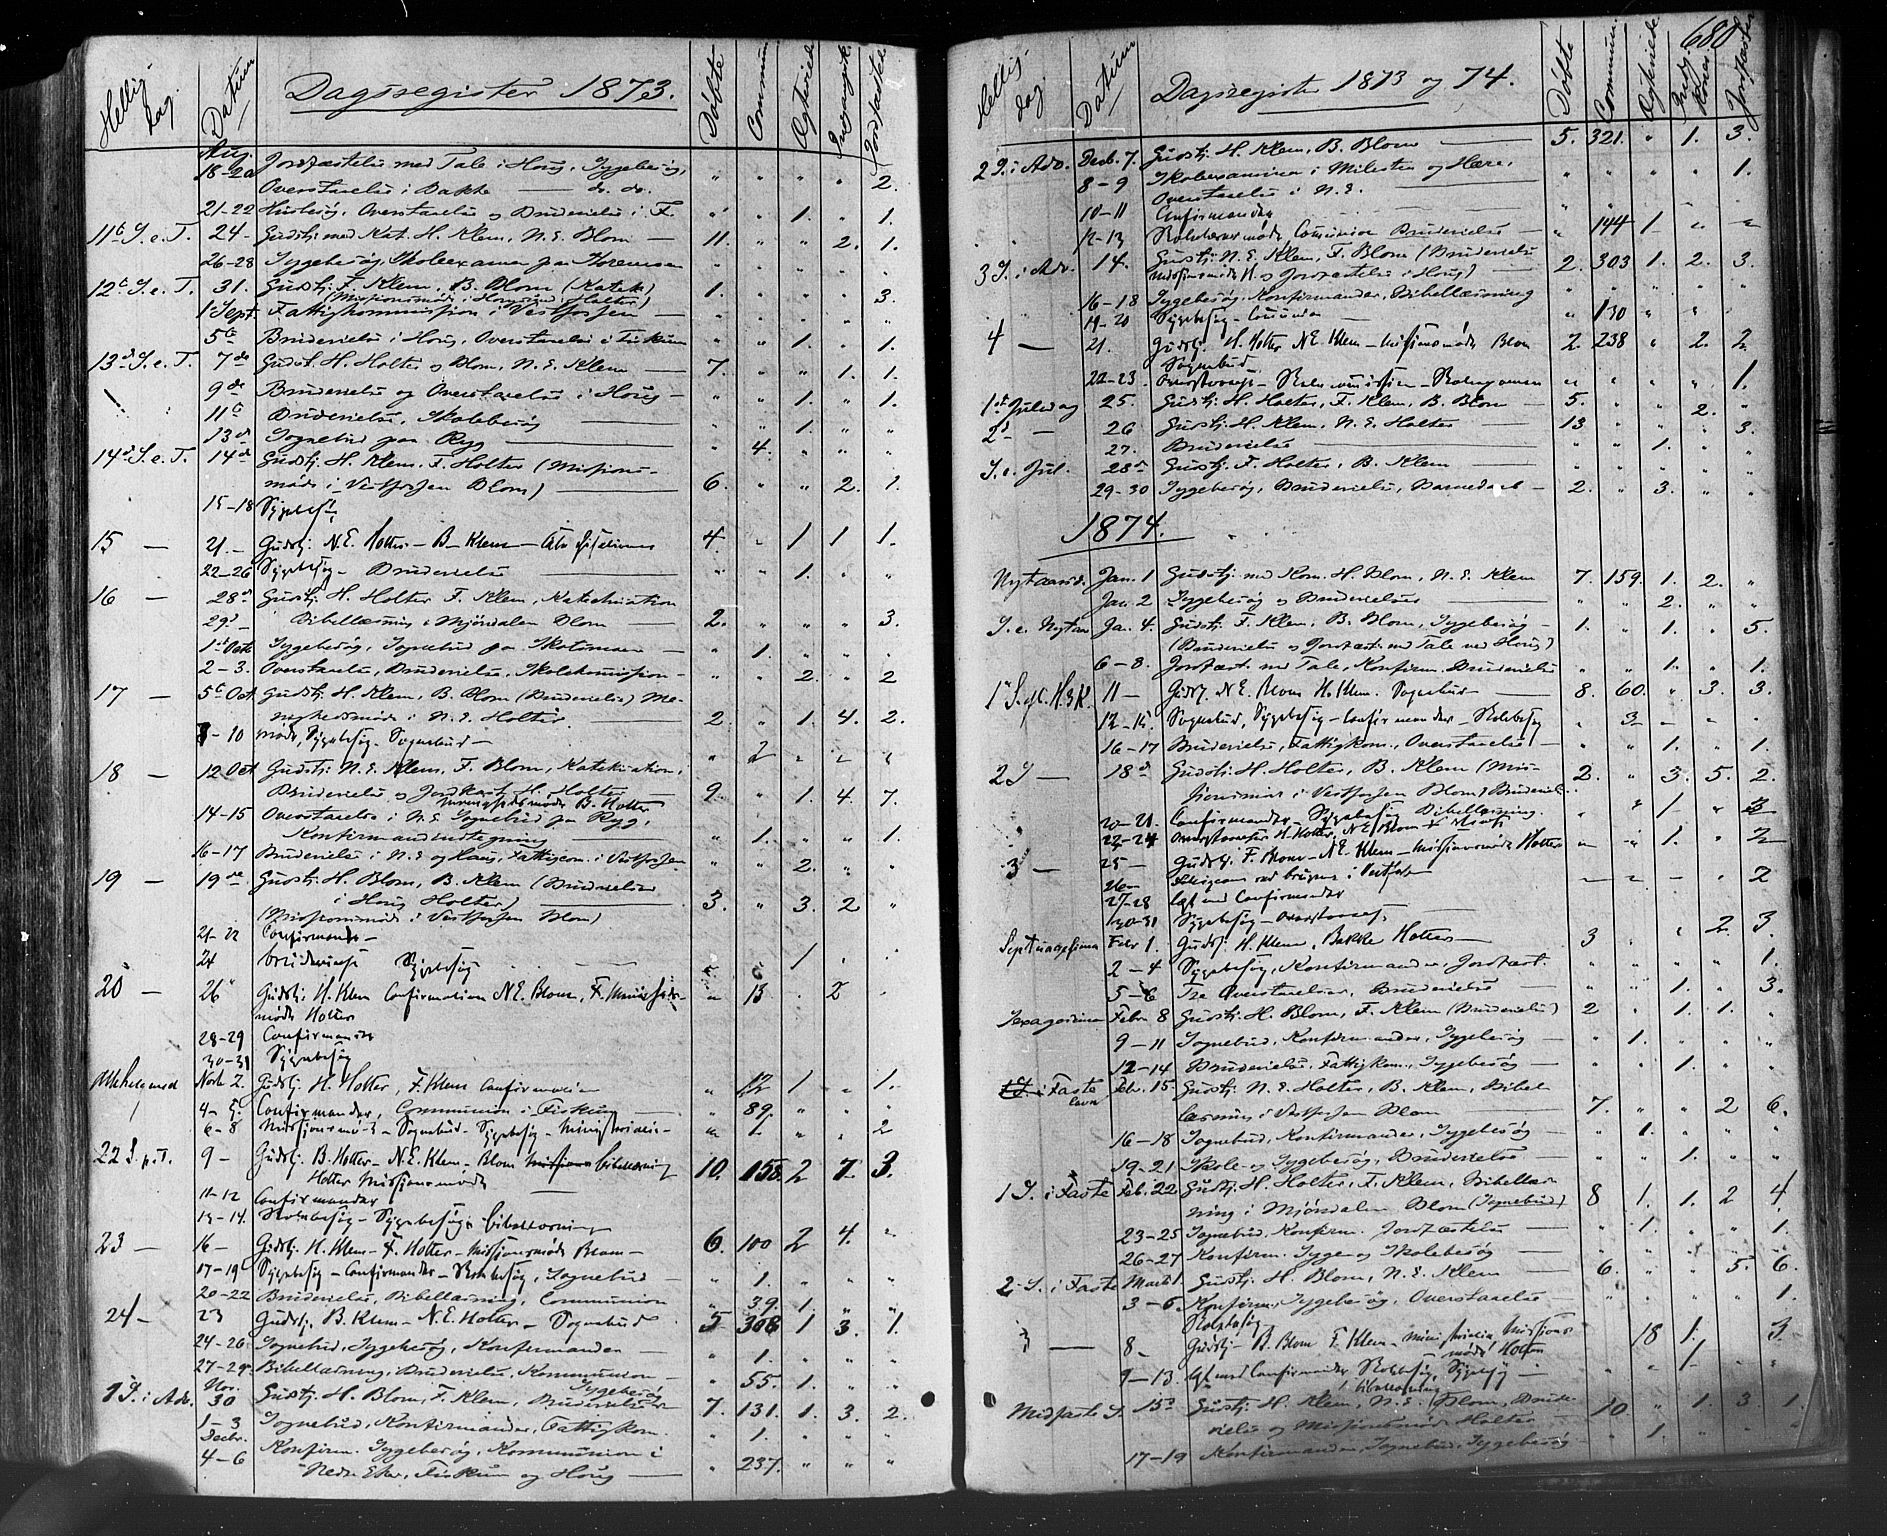 Hellig dag. Datum Dagsregister 1873. Døbte Commun Ægteviede Jordfæstede
Aug. 18-20 Jordfæstelse med Tale i Houg, Sygebesøg, " " " " 2.
Overstævelse i Bakke — do. do.
21-22 Husbesøg, Overstævelse og Brudevielse i F. " " 1. " 1.
11te S. e. T. 24- Gudstj. med Kat. H. Klem, N. E. Blom — 11. " " 2. 1.
26-28 Sygebesøg, Skoleexamen paa
12te S. e. T. 31. Gudstj. F. Klem, B. Blom (Katek.) 1. " " " 3.
(Missionsmøde i Houg Holter)
1 Sept. Fattigkommission i Vestfossen — " " " " "
5te Brudevielse i Houg, Overstævelse i Fiskum " " 1. " 1.
13de S. e. T. 7de Gudst. H. Holter og Blom, N. E. Klem — 7. " " 1. 1.
9de Brudevielse og Overstævelse i Houg — " " 1. " 1.
11te Brudevielse, Skolebesøg " " 1. " "
13de Sognebud paa Ryg — " 4. " " "
14de S. e. T. 14de Gudstj. H. Klem, F. Holter (Missions-
møde i Vestfossen Blom) — 6. " " 2. 1.
15-18 Sygebesøg
15 — 21- Gudstj. N.E. Holter - B. Klem - 4. " 1 1 1.
22-26 Sygebesøg - Brudevielse — " " 1. " "
16 — 28de Gudstj. H. Holter F. Klem, Katechisation
29de Bibellæsning i Mjøndalen Blom — 2. " " " 3.
1ste Octb Sygebesøg, Sognebud paa " 1. " " "
2-3. Overstævelse, Brudevielse, Skolekomission - " " 2. " 2
17 — 5te Oct. Gudstj. H. Klem, B. Blom (Brudevielse) Me-
nighedsmøde i N. E. Holter. — 2. " 1. 4. 2.
8-10 møde, Sygebesøg - Sognebud — " 2 " " "
18 — 12 Oct Gudstj. N. E. Klem, F. Blom, Katekisation,
Brudevielse og Jordfæst. H. Holter — 9. " 1. 4. 7.
Menighedsmøde B. Holter
14-15 Overstævelse i N. E. Sognebud paa Ryg,
Konfirmandindtegning — " 1. " " 1.
16-17 Brudevielse i N. E. og Haug, Fattigcom. i Vestfossen " " 2. " "
19 — 19de Gudstj. H. Blom, B. Klem (Brudevielse
i Houg Holter) — 3. " 3. 2 "
(Missionsmøde i Vestfossen Blom)
21-22 Confirmande —
24 brudevielse Sygebesøg — 1
20 — 26 Gudstj. H. Klem Confirmation N.E. Blom, F. " 13 . 2 .
møde Holter
28-29 Confirmande
30-31 Sygebesøg
Allehelgensd Novb 2. Gudstj. H. Holter, F. Klem Confirmation " 12 1 " 1.
4-5. Confirmander, Communion i Fiskum — " 89. " " "
6-8 Missionsmøde - Sognebud - Sygebesøg - " " " 2
22 S. p. T. 9- Gudstj. B. Holter - N. E. Klem - Blom bibellæsning 10. 158. 2 7. 3.
Holter Missionsmøde —
11-12 Confirmander
13-14. Skolebesøg - Sygebesøg bibellæsning
23 — 16- Gudstj. H. Klem - F. Holter - Missionsmøde Blom — 6. 100 2 4. "
17-19 Sygebesøg - Confirmander - Skolebesøg, Sognebud — " 1. " " "
20-22 Brudevielse, Bibellæsning, Communion " 39. 1. " "
24 — 23 Gudstj. B. Klem - N. E. Holter - Sognebud 5 308 1 3. 1.
24-26 Sognebud, Sygebesøg, Konfirmander — " 1. " " "
27-29 Bibellæsning, Brudevielse, Kommunion " 55. 1. " "
Sygebesøg
1 S. i Adv. Nov. 30 Gudstj. H. Blom, F. Klem, Brudevielse 7. 131. 1. 3. 2.
1-3 Decbr. Sognebud, Konfirmander, Fattigkom. " 1. " " "
4-6 Konfirm. Sygebesøg, Kommunion i
Nedre Eker, Fiskum og Houg — " 237. " " "
680
Hellig dag. Datum Dagsregister 1873 og 74. Døbte Commun Ægteviede Introd. Koner Jordfæstede
2 S. i Adv. Decb. 7. Gudstj. H. Klem, B. Blom — 5. 321. " 1. 3.
8-9 Skoleexamina i Milesten og Hære, " " " " 1.
Overstævelse i N. E.
10-11 Confirmander
12-13 Skolelærermøde, Comunion Brudevielse — " 144 1 " "
3 S. i Adv. 14. Gudstj. N. E. Klem, F. Blom (Brudevielse 2. 303 1. 2. 3.
Missionsmøde H. og Jordfæstelse i Houg) —
16-18 Sygebesøg, Konfirmander, Bibellæsning " " " " "
19-20 Sygebesøg - Comunion — " 130 " " "
4 — 21. Gudstj. H. Holter N.E. Klem - Missionsmøde Blom 2. 238 " 2. 2
Sognebud —
22-23. - Skolecomission - Skoleexamen " " " " 1.
1ste Juledag 25. Gudstj. H. Holter, F. Klem, B. Blom — 5. " " 2. "
2d — 26 Gudstj. H. Klem, N. E. Holter — 13 " " " 3.
27. Brudevielse — " " 1. " "
S. e. Jul. 28de Gudstj. F. Holter, B. Klem — " " " " "
29-30 Sygebesøg, Brudevielse, Barnedaab — 2. " 3. " "
1874.
Nytaarsd. Jan. 1 Gudstj. med Kom. H. Blom, N. E. Klem 7. 159. 1. 2. "
Jan. 2 Sygebesøg og Brudevielser — " " 2. " "
S. e. Nytaar Ja. 4. Gudstj. F. Klem, B. Blom, Sygebesøg — 1. " 1. " 5.
(Brudevielse og Jordfæst. med Tale ved Houg)
6-8. Jordfæst. med Tale, Konfirm. Brudevielse " " 1. " 1.
1 S. e. H. 3 K. 11- Gudstj. N.E. Blom H. Klem. Sognebud — 8. 60. " 3. 3.
12-15 Sognebud, Sygebesøg - Confirmander - Skolebesøg " 3 " " "
16-17 Brudevielse, Fattigkom., Overstævelse — " " 1. " 1.
2 S — 18de Gudstj. H. Holter, B. Klem (Mis- 2. " 3. 5. 2.
sionsmøde i Vestfossen Blom) Brudevielse
20-21 Confirmander - Sygebesøg Bibellæsning. " " 1. "
22-24 H. Holter, N. E. Blom " " 1. " 2
3 — 25- Gudstj. F. Blom - N. E. Klem - Missionsmøde Holter
26- i Vestfossen 2
27-28 læst med Confirmander
30-31 Sygebesøg -
Septuagesima Febr 1. Gudstj. H. Klem, Bakke Holter — 3 . " 2. 3.
2-4 Sygebesøg, Konfirmander, Jordfæst. " " " " 1.
5-6 Tre Overstævelser, Brudevielse — " " 1. " 3.
Sexagesima Febr. 8 Gudstj. H. Blom, F. Klem (Brudevielse) 2 " 1. 1. "
9-11 Sognebud, Konfirmander, Sygebesøg — " 1. " " "
12-14 Brudevielse, Fattigkom., Sygebesøg — " " 1. " "
Fastelavn Febr. 15 Gudstj. N. E. Holter, B. Klem, Bibel-
læsning i Vestfossen Blom — 7. " " 2 6.
16-18 Sognebud, Konfirmander, Sygebesøg — " 1. " " "
19-21 Skole- og Sygebesøg, Brudevielse — " " 1. " "
1 S. i Faste Feb. 22 Gudstj. H. Holter, F. Klem, Bibellæs-
ning i Mjøndalen Blom (Sognebud) 8 1. 1. 2 4.
23-25 Sognebud, Konfirm. Jordfæstelse — " 1. " " 1.
26-27 Konfirm. Syge- og Skolebesøg — " " " " "
2 S. i Faste Marts 1. Gudstj. H. Blom, N. E. Klem — 6. " " 5. 6.
3-6. Konfirm. Sygebesøg, Overstævelse — " " " " 1.
Skolebesøg
3 — 8- Gudstj - B. Blom F. Klem - Missions- 18 1. 3.
møde Holter
9-13. læst med Confirmander Skolebesøg, Sygebesøg — " 1 " "
bibellæsning
Midfaste S. 15de Gudstj. H. Klem, N. E. Blom, Brude- 10. " 1. 3. 1.
vielse og Missionsmøde Holter —
17-19 Konfirmander, Sognebud, Sygebesøg — " 1. " " "